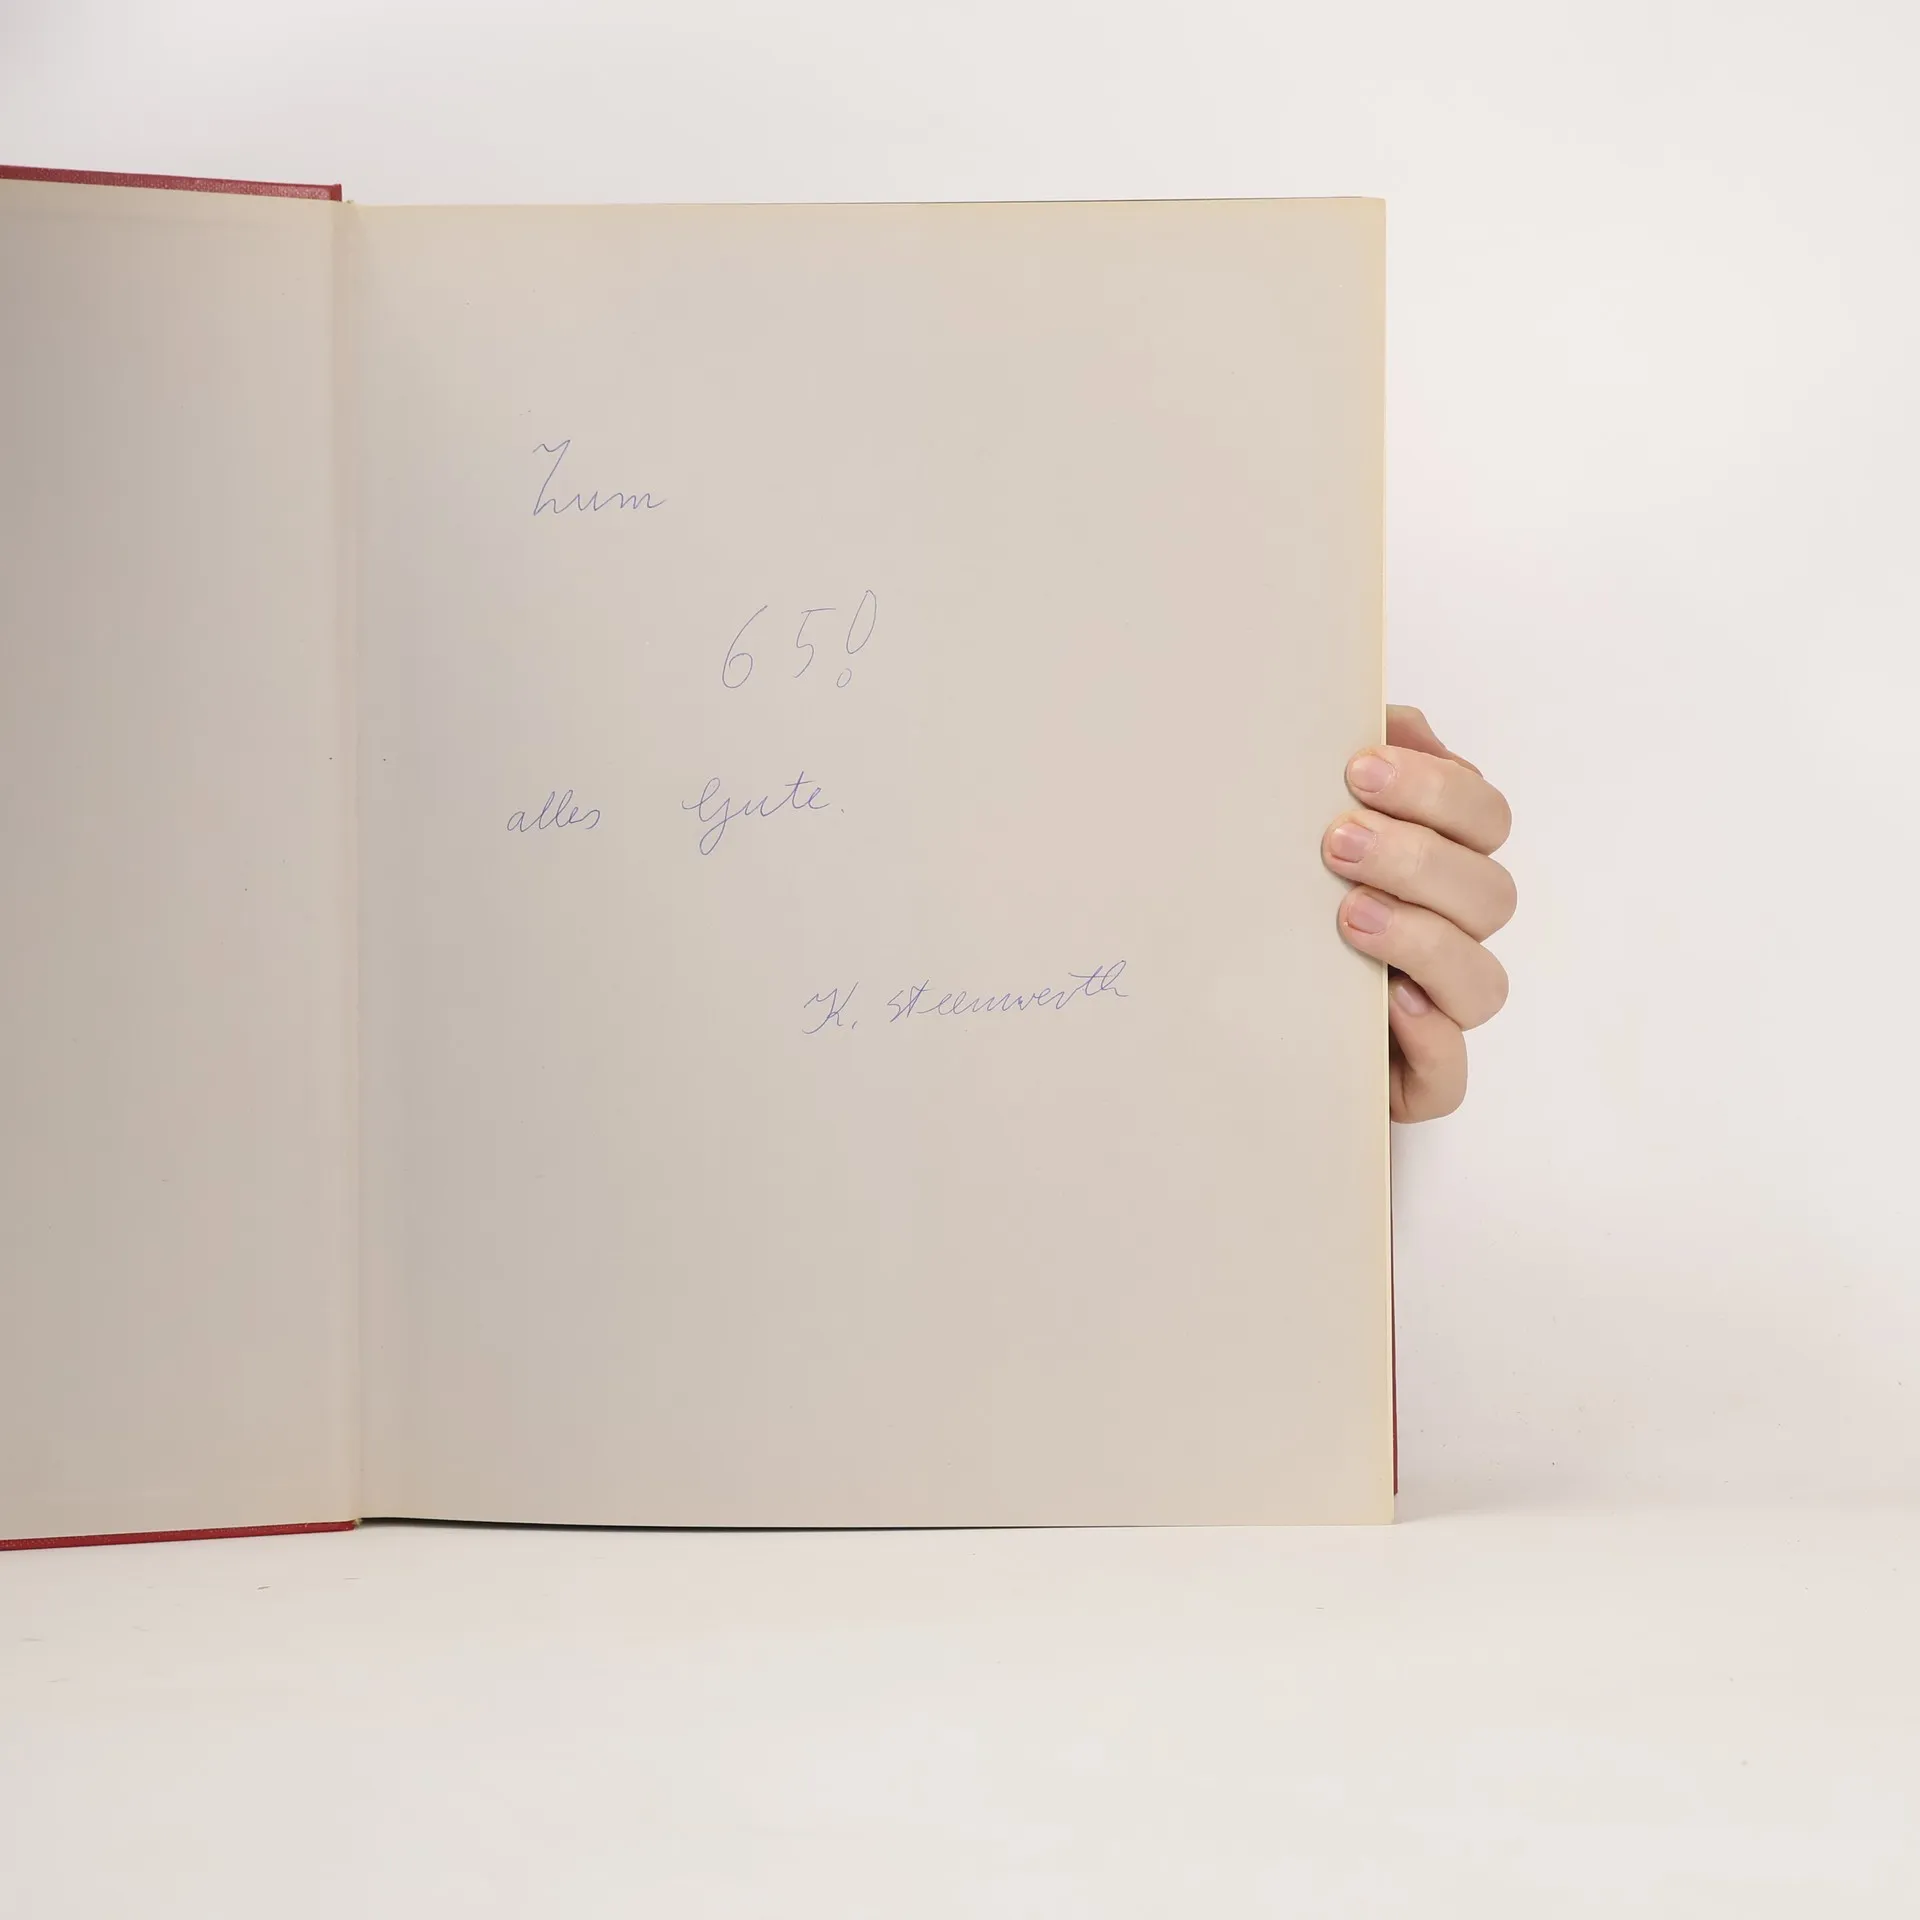 Zum
65!
alles Gute.
K. Steenwerth